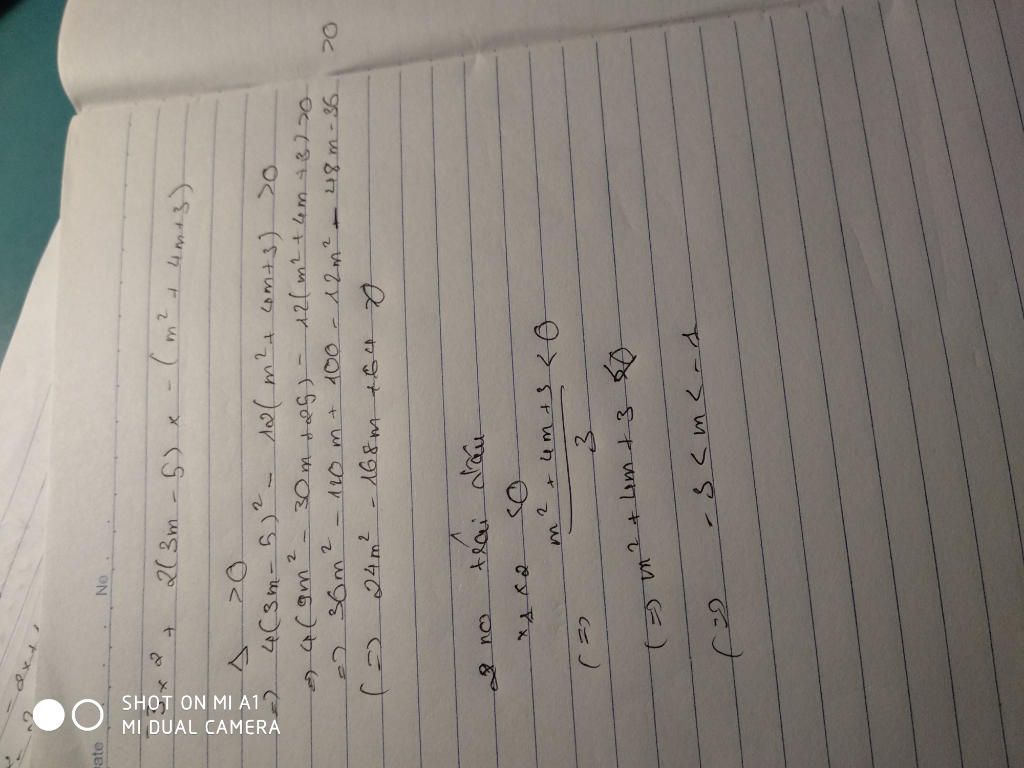 No
-3x² + 2(3m-5)x - (m² + 4m+3)
Δ >0
=) 4(3m-5)² - 12(m²+4m+3) >0
=) 4(9m² - 30m+25) - 12(m²+4m+3)>0
=) 36m² - 120m + 100 - 12m² - 48m - 36 >0
(=) 24m² - 168m + 64 >0
2 no trái dấu
x1 x2 <0
(=) m² + 4m + 3 / 3 <0
(=) m² + 4m + 3 <0
(=) -3 < m < -1
SHOT ON MI A1
MI DUAL CAMERA